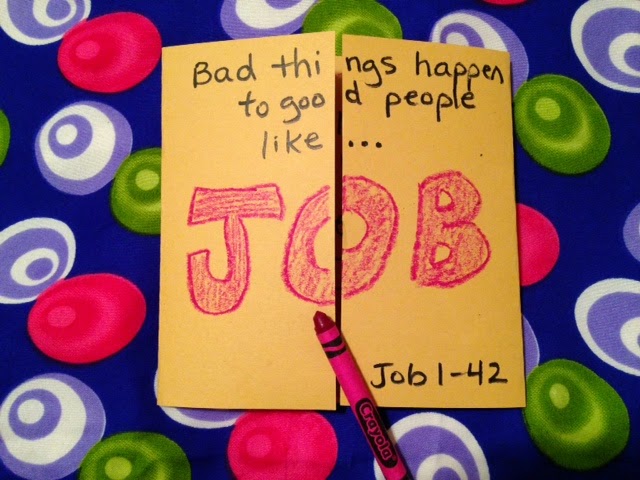 Bad things happen
to good people
like ...
JOB
Job 1-42
Crayola